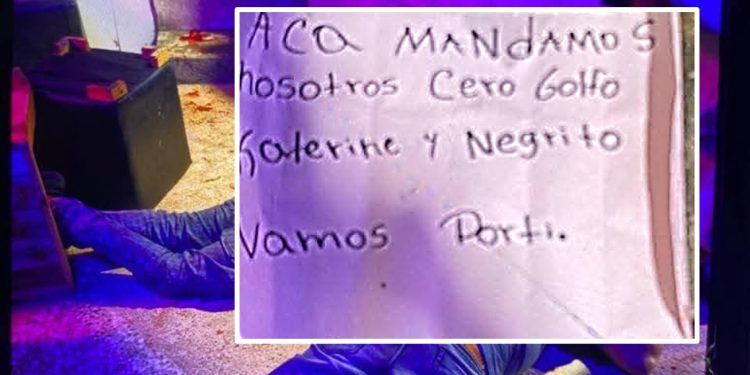 ACa MANdAMOS
Nosotros Cero Golfo
Katerine y Negrito
Vamos Porti.